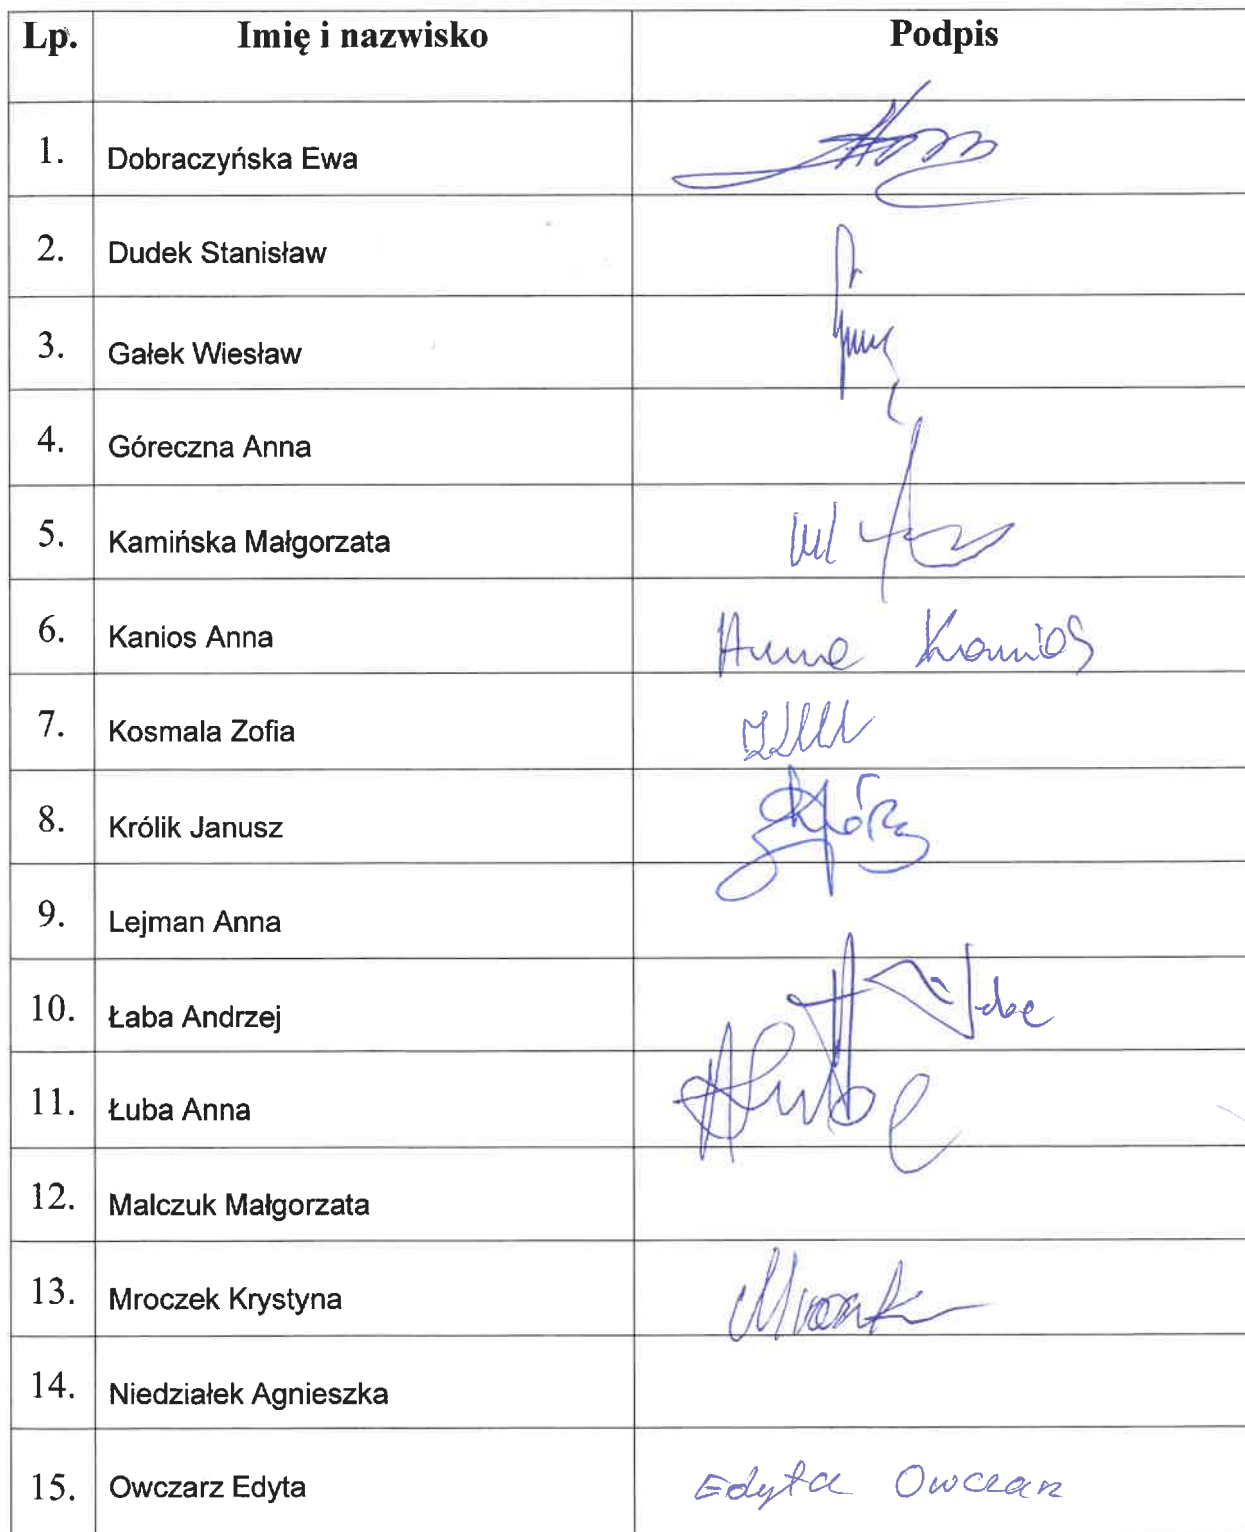 Lp. Imię i nazwisko Podpis
1. Dobraczyńska Ewa
2. Dudek Stanisław
3. Gałek Wiesław
4. Góreczna Anna
5. Kamińska Małgorzata
6. Kanios Anna Anna Kanios
7. Kosmala Zofia
8. Królik Janusz
9. Lejman Anna
10. Łaba Andrzej
11. Łuba Anna
12. Malczuk Małgorzata
13. Mroczek Krystyna
14. Niedziałek Agnieszka
15. Owczarz Edyta Edyta Owczarz